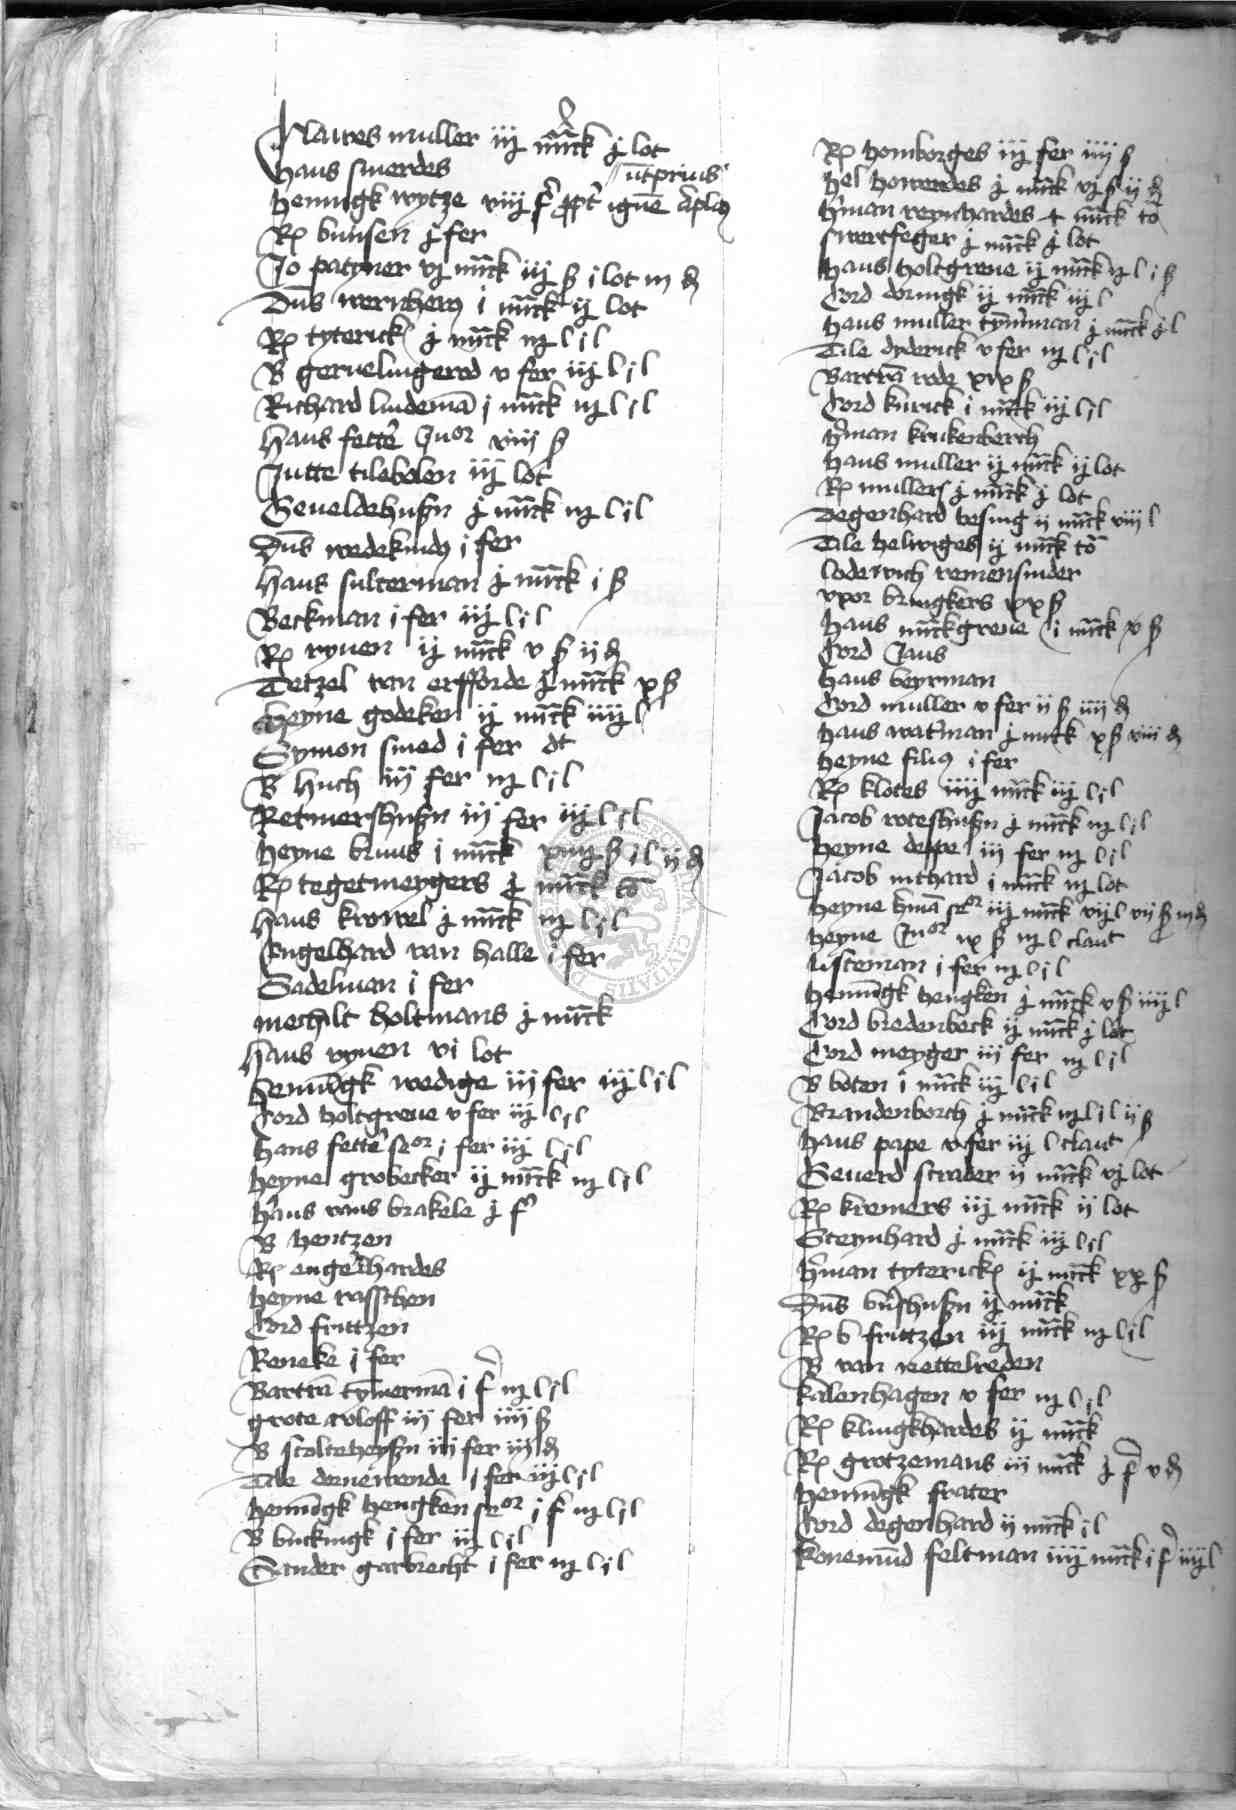 Clawes muller iij mrck j lot
Hans swerdes
Henningk wytze viiij f ppt ignē ut prius
Rꝫ bunsen j fer
Jo patyner vj mrck iij ß i lot iij ₰
Dns wernherꝰ i mrck ij lot
Rꝫ tyterick j mrck iij l i l
B geruelingerod v fer iij l i l
Richard lindemā j mrck iij l i l
Hans fette Junor viiij ß
Jutte tilebolen iij lot
Geueldehusen j mrck iij l i l
Dns wedekindꝰ i fer
Hans sulterman j mrck i ß
Beckman i fer iij l i l
Rꝫ ryuen ij mrck v ß ij ₰
Tetzel van erfforde j mrck x ß
Heyne godeken ij mrck iiij l
Symon smed i fer dt
B Huch iij fer iij l i l
Retmershusen iij fer iij l i l
Heyne bruns i mrck ß i l ij ₰
Rꝫ tegetmeygers j mrck tō
Hans krowel j mrck iij l i l
Engelhard van halle i fer
Sadelman i fer
mechalt holtmans j mrck
Hans ryuen vi lot
Henningk wedige iij fer iij l i l
Cord holtgreue v fer iij l i l
Hans fette seor i fer iij l i l
Heyne grobecker ij mrck iij l i l
Hans vans brakele j f
B hentzen
Rꝫ engelhardes
Heyne rasschen
Cord frittzen
Reneke i fer
Bartrā tymermā i f iij l i l
grote roloff iij fer iiij ß
B stolteheysen iij fer iij ₰
Tile i fer iij l i l
Henningk hengken seor i f iij l i l
B buckingk i fer iij l i l
Sander garbrecht i fer iij l i l
Rꝫ homborges iij fer iiij ß
Hel howerdes j mrck vj ß ij ₰
Hman reynhardes mrck tō
swertfeger j mrck j lot
Hans holtgreue ij mrck iij l i ß
Cord doringk ij mrck iij l
Hans muller tymman j mrck j l
Tile dyderick v fer iij l i l
Bartrā rode xix ß
Cord knrick i mrck iij l i l
Hman krukenberch
Hans muller ij mrck ij lot
Rꝫ mullers j mrck j lot
Degenhard besing ij mrck viij l
Tile helwiges ij mrck tō
lodewich remensnider
vxor bringkers xx ß
Hans mrckgreue i mrck x ß
Cord Jans
Hans beyrman
Cord muller v fer ij ß iiij ₰
Hans watman j mrck x ß viii ₰
Heyne filiꝰ i fer
Rꝫ klotes iiij mrck iij l i l
Jacob roteshusen j mrck iij l i l
Heyne deppe iij fer iij l i l
Jacob nithard i mrck iij lot
Heyne hmā seor iij mrck vij l vij ß iij ₰
Heyne Junor ix ß iij l claut
lisseman i fer iij l i l
Henningk hengken j mrck v ß iiij l
Cord bredenbeck ij mrck j lot
Cord meyger iij fer iij l i l
B boten i mrck iij l i l
Brandenborch j mrck iij l i l ij ß
Hans pape v fer iij l claut
Geuerd scrader ij mrck vj lot
Rꝫ kremers iij mrck ij lot
Steynhard j mrck iij l i l
Hman tyterickꝫ ij mrck xx ß
Dns bushusen ij mrck
Rꝫ b frittzen iij mrck iij l i l
B van nettelreden
kalenhagen v fer iij l i l
Rꝫ klingkhardes ij mrck
Rꝫ grotzemans iij mrck j f v ₰
Henningk frater
Cord degenhard ij mrck i l
konemūd feltman iiij mrck i f iiij l